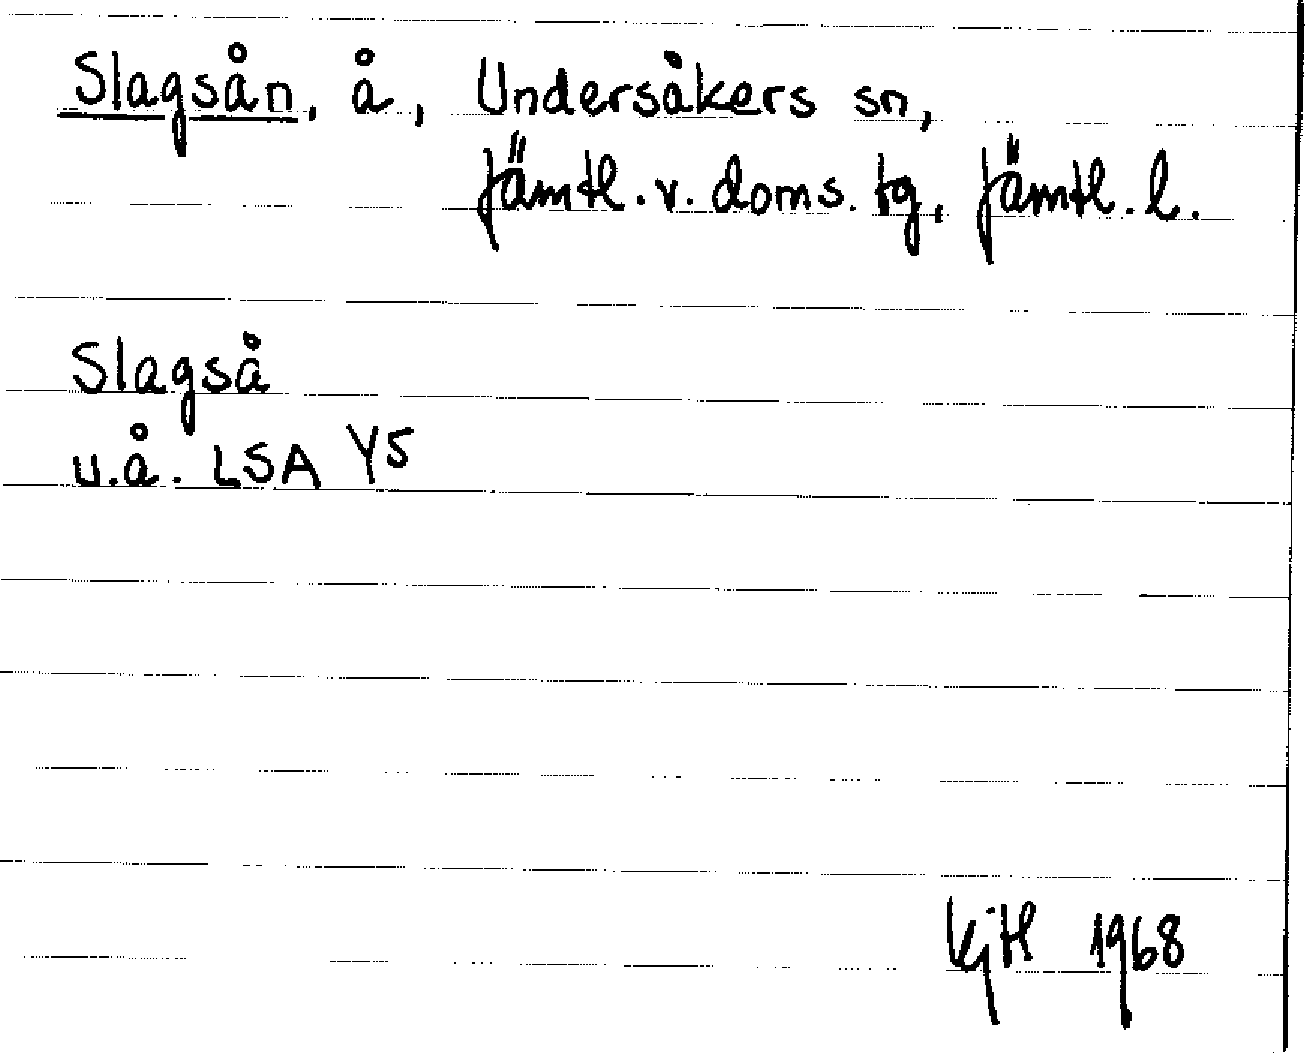 Slagsån, å, Undersåkers sn,
Jämtl. v. doms. tg, Jämtl. l.
Slagså
u.å. LSA Y5
KjH 1968